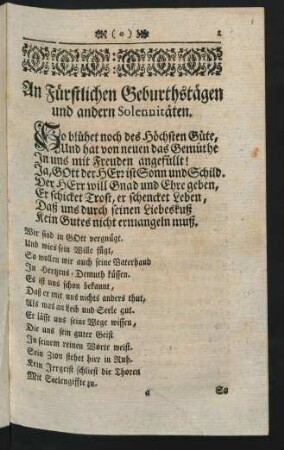 ( o )
An Fürstlichen Geburthstägen
und andern Solennitäten.
So blühet noch des Höchsten Güte,
Und hat von neuen das Gemüthe
In uns mit Freuden angefüllt!
Ja, GOtt der HErr ist Sonn und Schild.
Der HErr will Gnad und Ehre geben,
Er schicket Trost, er schencket Leben,
Daß uns durch seinen Liebeskuß
Kein Gutes nicht ermangeln muß.
Wir sind in GOtt vergnügt.
Und wies sein Wille fügt,
So wollen wir auch seine Vaterhand
In Hertzens-Demuth küssen.
Es ist uns schon bekannt,
Daß er mit uns nichts anders thut,
Als was an Leib und Seele gut.
Er lässt uns seine Wege wissen,
Die uns sein guter Geist
In seinem reinen Worte weist.
Sein Zion stehet hier in Ruh,
Kein Irrgeist schliest die Thoren
Mit Seelengiffte zu.
a So